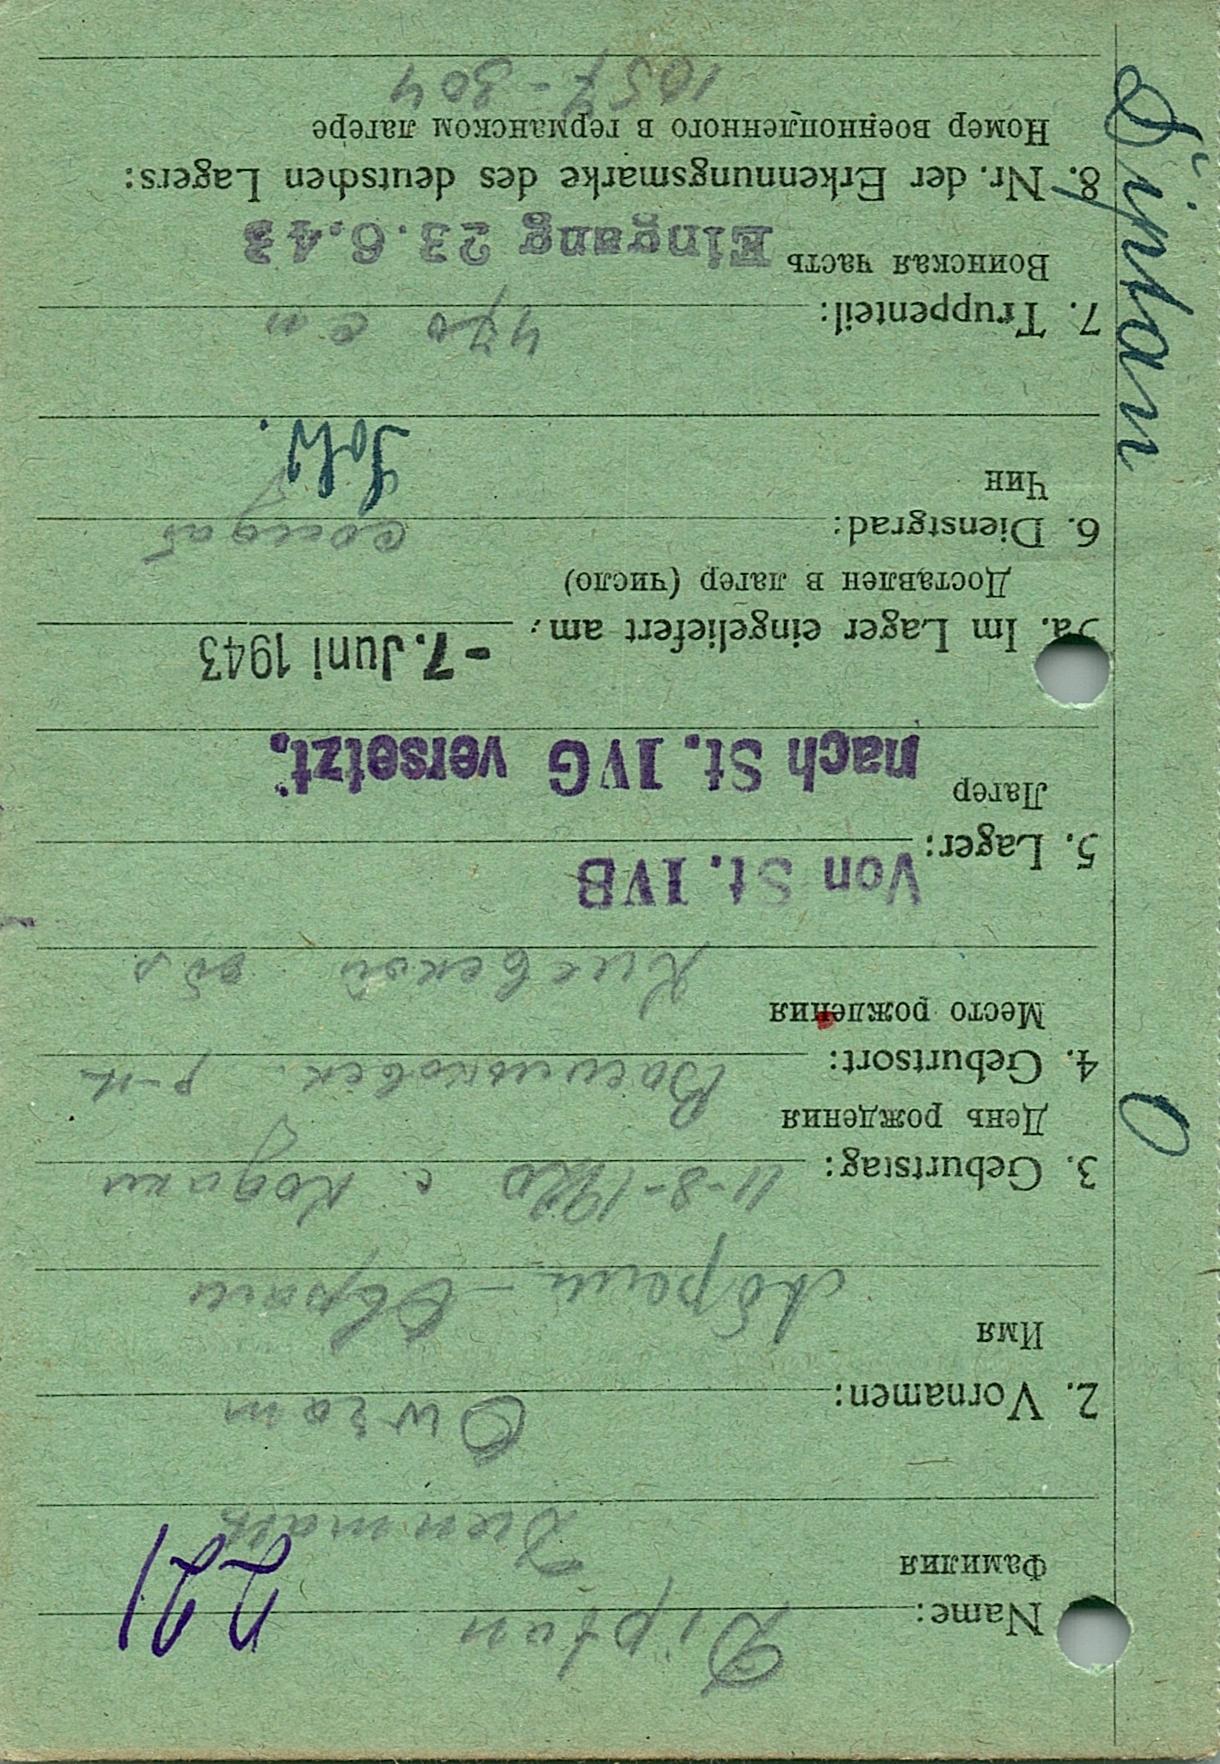 Name: Diptan 221
Фамилия
2. Vornamen: Owram
Имя
Абрам - Оврам
3. Geburtstag: 11-8-1920 с.
День рождения
4. Geburtsort: р-н
Место рождения
Киевской обл
Von St. IVB
5. Lager:
Лагер
nach St. IVG versetzt.
5a. Im Lager eingeliefert am: -7. Juni 1943
Доставлен в лагер (число)
6. Dienstgrad: солдат
Чин
Sold.
7. Truppenteil: 470 сп
Воинская часть Eingang 23.6.43
8. Nr. der Erkennungsmarke des deutschen Lagers:
Номер военнопленного в германском лагере
1057-304
O
Diptan